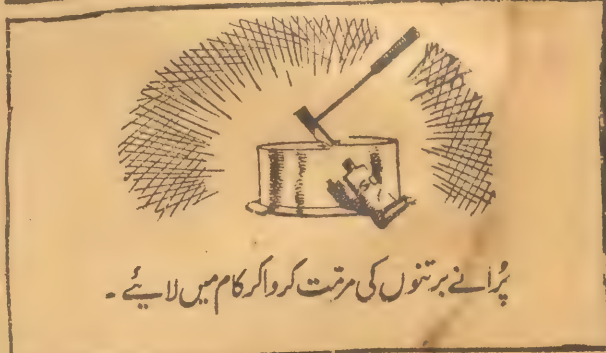 پُرانے برتنوں کی مرمّت کرواکر کام میں لایئے ۔